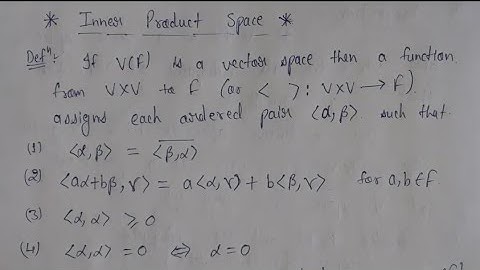 * Inner Product Space *
Defⁿ:- If V(F) is a vector space then a function
from V×V to F (or < > : V×V → F)
assigns each ordered pair <α,β> such that
(1) <α,β> = \overline{<β,α>}
(2) <aα+bβ,γ> = a<α,γ> + b<β,γ> for a,b∈F.
(3) <α,α> ⩾ 0
(4) <α,α> = 0 ⇔ α=0